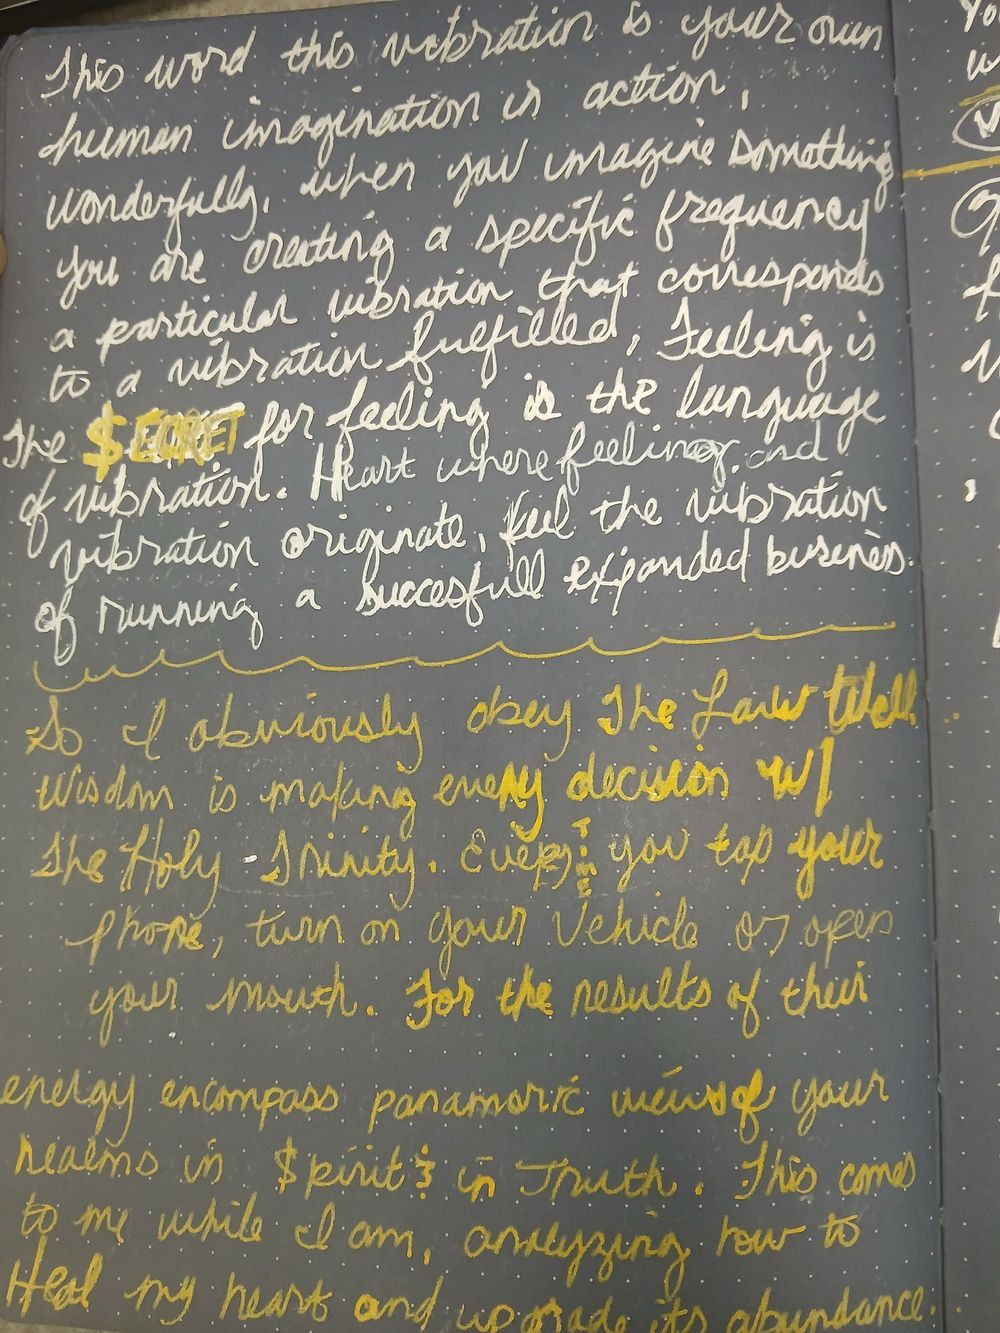 This word this vibration is your own
human imagination is action,
wonderfully, when you imagine something
you are creating a specific frequency
a particular vibration that corresponds
to a vibration fulfilled, Feeling is
The $ECRET for feeling is the language
of vibration. Heart where feeling. and
vibration originate, feel the vibration
of running a succesfull expanded business.
So I obviously obey The Law Well
Wisdom is making every decision w/
The Holy-Trinity. Every TIME you tap your
phone, turn on your Vehicle or open
your mouth. For the results of their
energy encompass panamoric views of your
realms in $pirit & in Truth. This comes
to me while I am, analyzing how to
Heal my heart and upgrade its abundance.